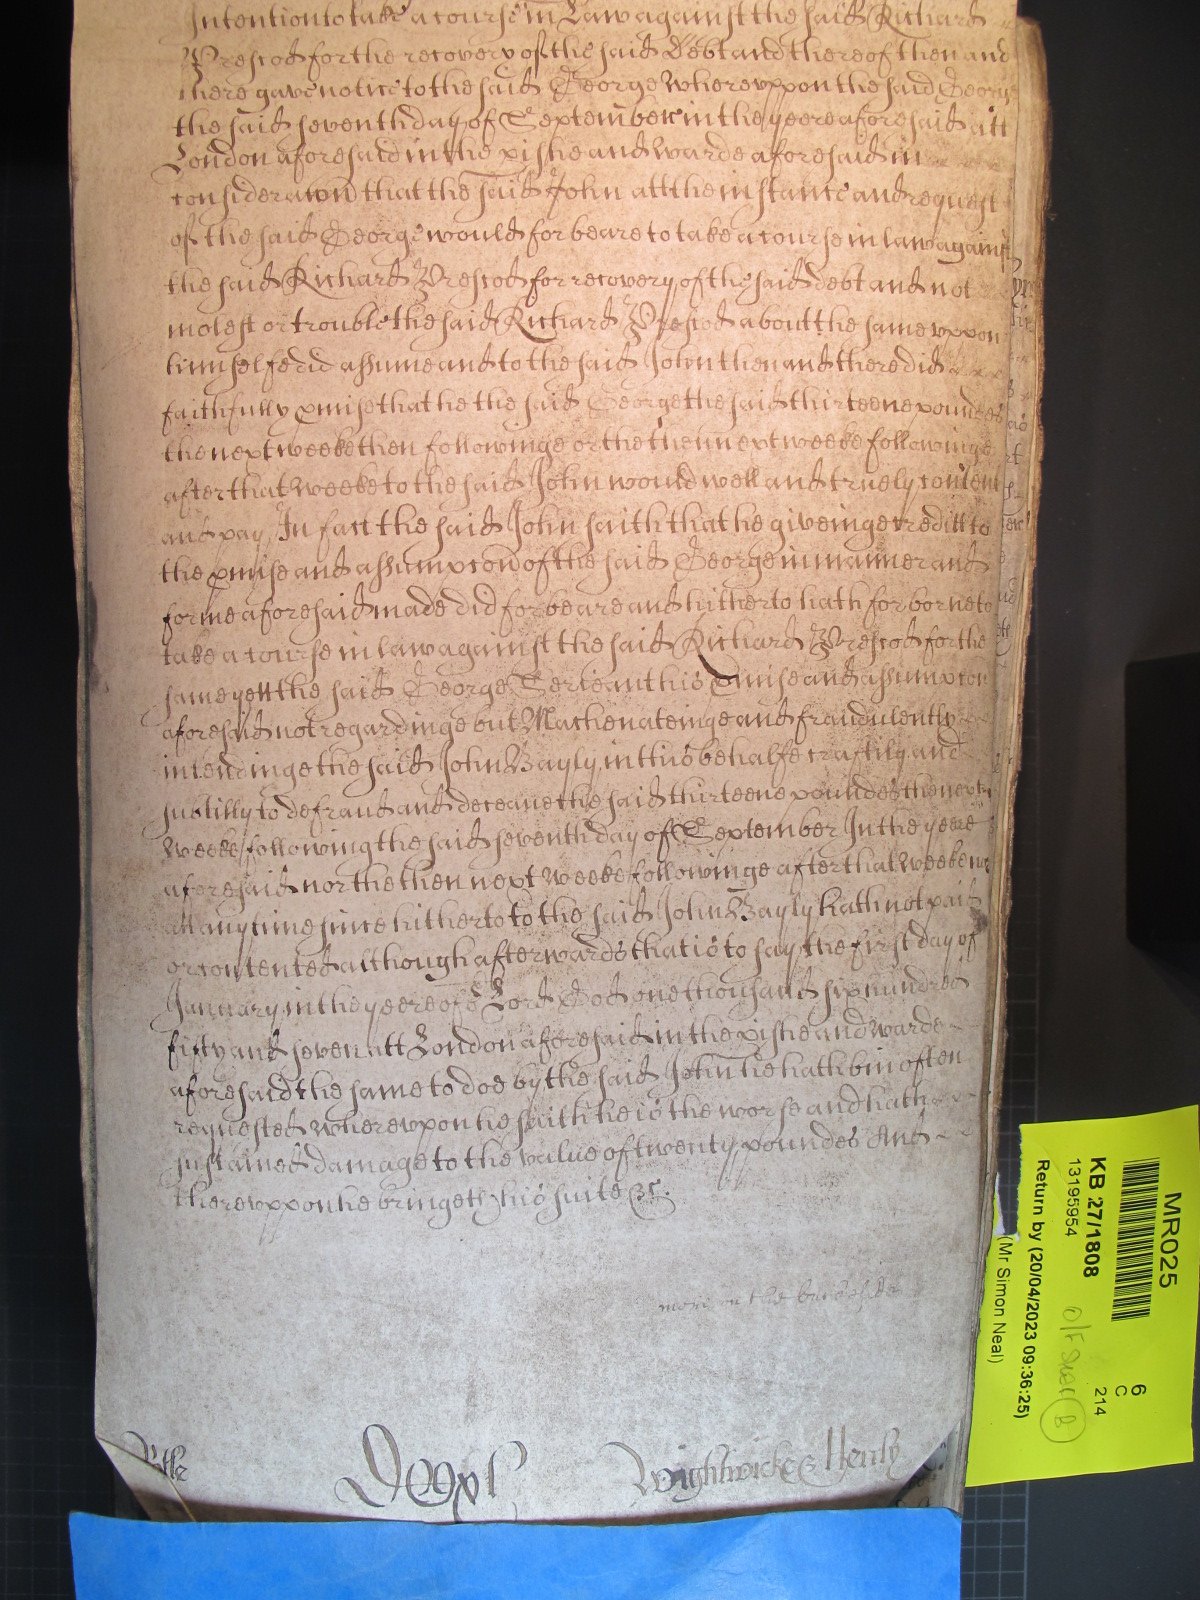 Intention to take a course in Law against the said Richard
Prescod for the recovery of the said Debt and thereof then and
there gave notice to the said George wherevppon the said George
the said seventh day of September in the yeere aforesaid att
London aforesaid in the pishe and warde aforesaid in
consideracon that the said John att the instance and request
of the said George would forbeare to take a course in law against
the said Richard Prescod for recovery of the said debt and not
molest or trouble the said Richard Prescod about the same vppon
himselfe did assume and to the said John then and there did
faithfully pmise that he the said George the said thirteene poundes
the next weeke then followinge or the then next weeke followinge
after that weeke to the said John would well and truely content
and pay, In fact the said John saith that he giveinge creditt to
the pmise and assumpcon of the said George in manner and
forme aforesaid made did forbeare and hitherto hath forborne to
take a course in law against the said Richard Prescod for the
same yett the said George Serieant his pmise and assumpcon
aforesaid not regardinge but Machenateinge and fraudulently
intendinge the said John Bayly, in this behalfe craftily and
subtilly to defraud and deceave the said thirteene poundes the next
weeke followinge the said seventh day of September In the yeere
aforesaid nor the then next weeke followinge after that weeke nor
att any time since hitherto to the said John Bayly hath not paid
or contented although afterwards that is to say the first day of
January in the yeere of o Lord God one thousand six hundred
fifty and seven att London aforesaid in the pishe and warde
aforesaid the same to doe by the said John he hath bin often
requested wherevpon he saith he is the worse and hath
sustained damage to the value of twenty poundes And
therevppon he bringeth his suite &c.
more on the backside
Wightwicke & Henly
MR025
KB 27/1808
13195954
6
C
214
Return by (20/04/2023 09:36:25)
(Mr Simon Neal)
B